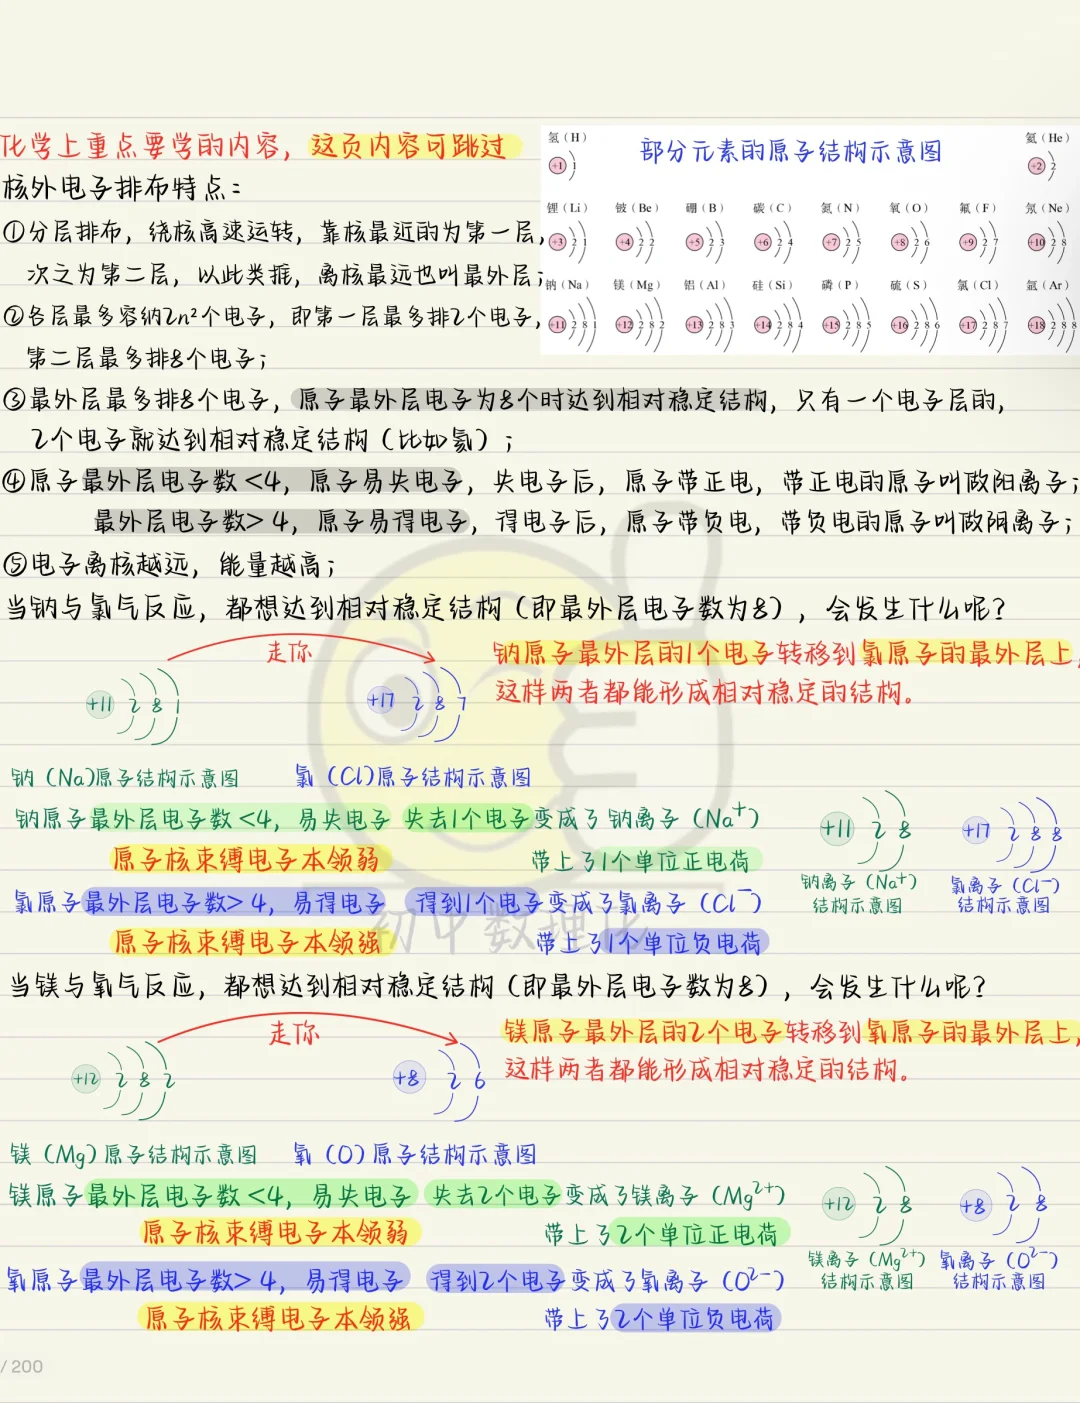 化学上重点要学的内容，这页内容可跳过
核外电子排布特点：
①分层排布，绕核高速运转，靠核最近的为第一层，
次之为第二层，以此类推，离核最远也叫最外层；
②各层最多容纳2n²个电子，即第一层最多排2个电子，
第二层最多排8个电子；
部分元素的原子结构示意图
氢（H） 氦（He）
+1 1 +2 2
锂（Li） 铍（Be） 硼（B） 碳（C） 氮（N） 氧（O） 氟（F） 氖（Ne）
+3 2 1 +4 2 2 +5 2 3 +6 2 4 +7 2 5 +8 2 6 +9 2 7 +10 2 8
钠（Na） 镁（Mg） 铝（Al） 硅（Si） 磷（P） 硫（S） 氯（Cl） 氩（Ar）
+11 2 8 1 +12 2 8 2 +13 2 8 3 +14 2 8 4 +15 2 8 5 +16 2 8 6 +17 2 8 7 +18 2 8 8
③最外层最多排8个电子，原子最外层电子为8个时达到相对稳定结构，只有一个电子层的，
2个电子就达到相对稳定结构（比如氦）；
④原子最外层电子数<4，原子易失电子，失电子后，原子带正电，带正电的原子叫做阳离子；
最外层电子数>4，原子易得电子，得电子后，原子带负电，带负电的原子叫做阴离子；
⑤电子离核越远，能量越高；
当钠与氯气反应，都想达到相对稳定结构（即最外层电子数为8），会发生什么呢？
走你
钠原子最外层的1个电子转移到氯原子的最外层上，
这样两者都能形成相对稳定的结构。
+11 2 8 1 +17 2 8 7
钠（Na)原子结构示意图 氯（Cl)原子结构示意图
钠原子最外层电子数<4，易失电子 失去1个电子变成了钠离子（Na⁺）
原子核束缚电子本领弱 带上了1个单位正电荷
氯原子最外层电子数>4，易得电子 得到1个电子变成了氯离子（Cl⁻）
原子核束缚电子本领强 带上了1个单位负电荷
+11 2 8 +17 2 8 8
钠离子（Na⁺） 氯离子（Cl⁻）
结构示意图 结构示意图
初中数理化
当镁与氧气反应，都想达到相对稳定结构（即最外层电子数为8），会发生什么呢？
走你
镁原子最外层的2个电子转移到氧原子的最外层上，
这样两者都能形成相对稳定的结构。
+12 2 8 2 +8 2 6
镁（Mg）原子结构示意图 氧（O）原子结构示意图
镁原子最外层电子数<4，易失电子 失去2个电子变成了镁离子（Mg²⁺）
原子核束缚电子本领弱 带上了2个单位正电荷
氧原子最外层电子数>4，易得电子 得到2个电子变成了氧离子（O²⁻）
原子核束缚电子本领强 带上了2个单位负电荷
+12 2 8 +8 2 8
镁离子（Mg²⁺） 氧离子（O²⁻）
结构示意图 结构示意图
/ 200